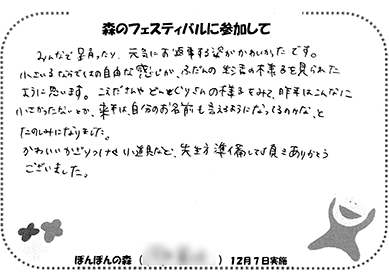 森のフェスティバルに参加して
みんなで足ったり、元気にお返事する姿がかわいかったです。
小さいならではの自由な感じが、ふだんの生活の様子を見られた
ように思います。こえださんやどんぐりさんの様子をみて、昨年はこんなに
小さかったなぁとか、来年は自分のお名前も言えるようになってるのかな、と
たのしみになりました。
かわいいかざりつけや小道具など、先生方準備して頂きありがとう
ございました。
ぽんぽんの森（　　　）12月7日実施